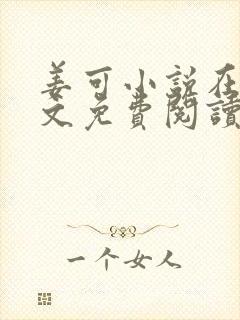 姜可小说在
文免費閱讀
一个女人